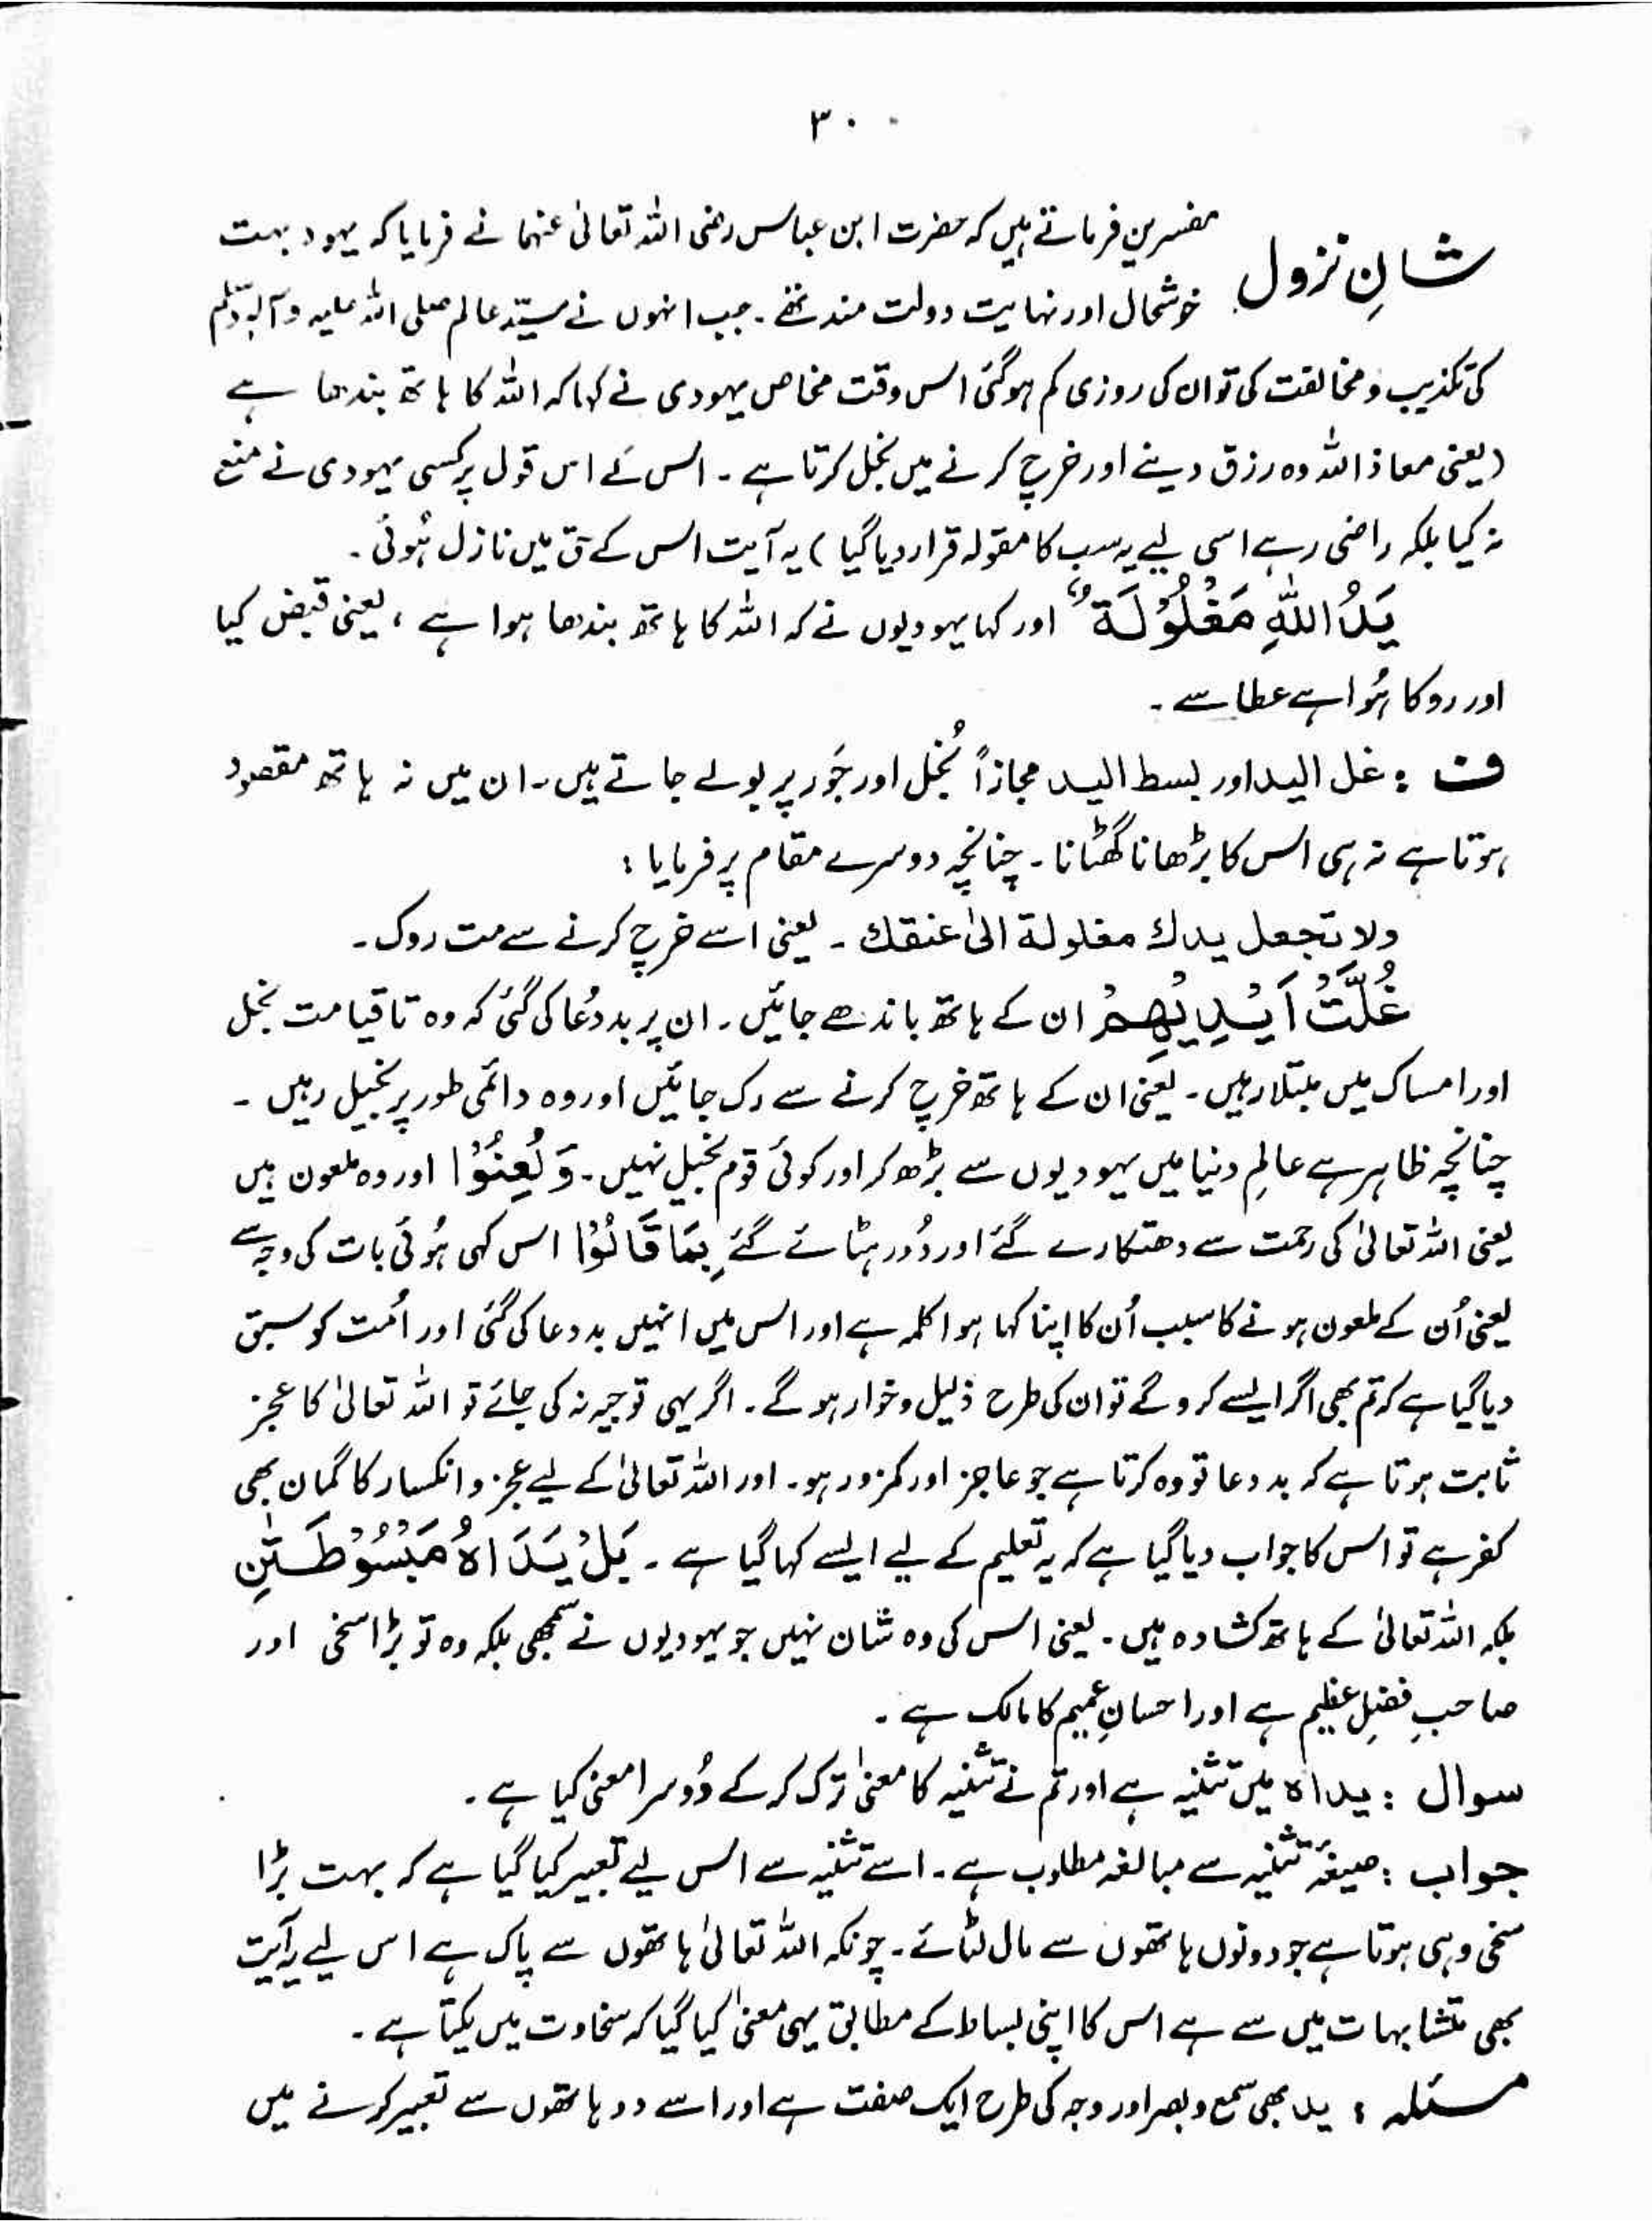 ٣٠٠
شانِ نزول مفسرین فرماتے ہیں کہ حضرت ابن عباس رضی اللہ تعالیٰ عنہما نے فرمایا کہ یہود بہت
خوشحال اور نہایت دولت مند تھے ۔ جب انہوں نے سیّد عالم صلی اللہ علیہ وآلہ وسلم
کی تکذیب و مخالفت کی تو ان کی روزی کم ہوگئی اس وقت مخاص یہودی نے کہا کہ اللہ کا ہاتھ بندھا ہے
(یعنی معاذ اللہ وہ رزق دینے اور خرچ کرنے میں بخل کرتا ہے ۔ اس کے اس قول پر کسی یہودی نے منع
نہ کیا بلکہ راضی رہے اسی لیے یہ سب کا مقولہ قرار دیا گیا) یہ آیت اس کے حق میں نازل ہُوئی ۔
يَدُ اللّٰهِ مَغْلُوْلَةٌ ؕ اور کہا یہودیوں نے کہ اللہ کا ہاتھ بندھا ہوا ہے ، یعنی قبض کیا
اور روکا ہُوا ہے عطا سے ۔
ف : غل الید اور بسط الید مجازاً بُخل اور جَود پر بولے جاتے ہیں ۔ ان میں نہ ہاتھ مقصود
ہوتا ہے نہ ہی اس کا بڑھانا گھٹانا ۔ چنانچہ دوسرے مقام پر فرمایا :
ولا تجعل يدك مغلولة الىٰ عنقك ۔ یعنی اسے خرچ کرنے سے مت روک ۔
غُلَّتْ اَيْدِيْهِمْ ان کے ہاتھ باندھے جائیں ۔ ان پر بددُعا کی گئی کہ وہ تا قیامت بخل
اور امساک میں مبتلا رہیں ۔ یعنی ان کے ہاتھ خرچ کرنے سے رک جائیں اور وہ دائمی طور پر بخیل رہیں ۔
چنانچہ ظاہر ہے عالمِ دنیا میں یہودیوں سے بڑھ کر اور کوئی قوم بخیل نہیں ۔ وَ لُعِنُوْا اور وہ ملعون ہیں
یعنی اللہ تعالیٰ کی رحمت سے دھتکارے گئے اور دُور ہٹائے گئے بِمَا قَالُوْا اس کہی ہُوئی بات کی وجہ سے
یعنی اُن کے ملعون ہونے کا سبب اُن کا اپنا کہا ہوا کلمہ ہے اور اس میں انہیں بددعا کی گئی اور اُمت کو سبق
دیا گیا ہے کہ تم بھی اگر ایسے کرو گے تو ان کی طرح ذلیل و خوار ہو گے ۔ اگر یہی توجیہ نہ کی جائے تو اللہ تعالیٰ کا عجز
ثابت ہوتا ہے کہ بددعا تو وہ کرتا ہے جو عاجز اور کمزور ہو ۔ اور اللہ تعالیٰ کے لیے عجز و انکسار کا گمان بھی
کفر ہے تو اس کا جواب دیا گیا ہے کہ یہ تعلیم کے لیے ایسے کہا گیا ہے ۔ بَلْ يَدَاهُ مَبْسُوْطَتٰنِ
بلکہ اللہ تعالیٰ کے ہاتھ کشادہ ہیں ۔ یعنی اس کی وہ شان نہیں جو یہودیوں نے سمجھی بلکہ وہ تو بڑا سخی اور
صاحبِ فضلِ عظیم ہے اور احسانِ عمیم کا مالک ہے ۔
سوال : یداہ میں تثنیہ ہے اور تم نے تثنیہ کا معنیٰ ترک کر کے دُوسرا معنی کیا ہے ۔
جواب : صیغۂ تثنیہ سے مبالغہ مطلوب ہے ۔ اسے تثنیہ سے اس لیے تعبیر کیا گیا ہے کہ بہت بڑا
سخی وہی ہوتا ہے جو دونوں ہاتھوں سے مال لٹائے ۔ چونکہ اللہ تعالیٰ ہاتھوں سے پاک ہے اس لیے یہ آیت
بھی متشابہات میں سے ہے اس کا اپنی بساط کے مطابق یہی معنیٰ کیا گیا کہ سخاوت میں یکتا ہے ۔
مسئلہ : ید بھی سمع و بصر اور وجہ کی طرح ایک صفت ہے اور اسے دو ہاتھوں سے تعبیر کرنے میں